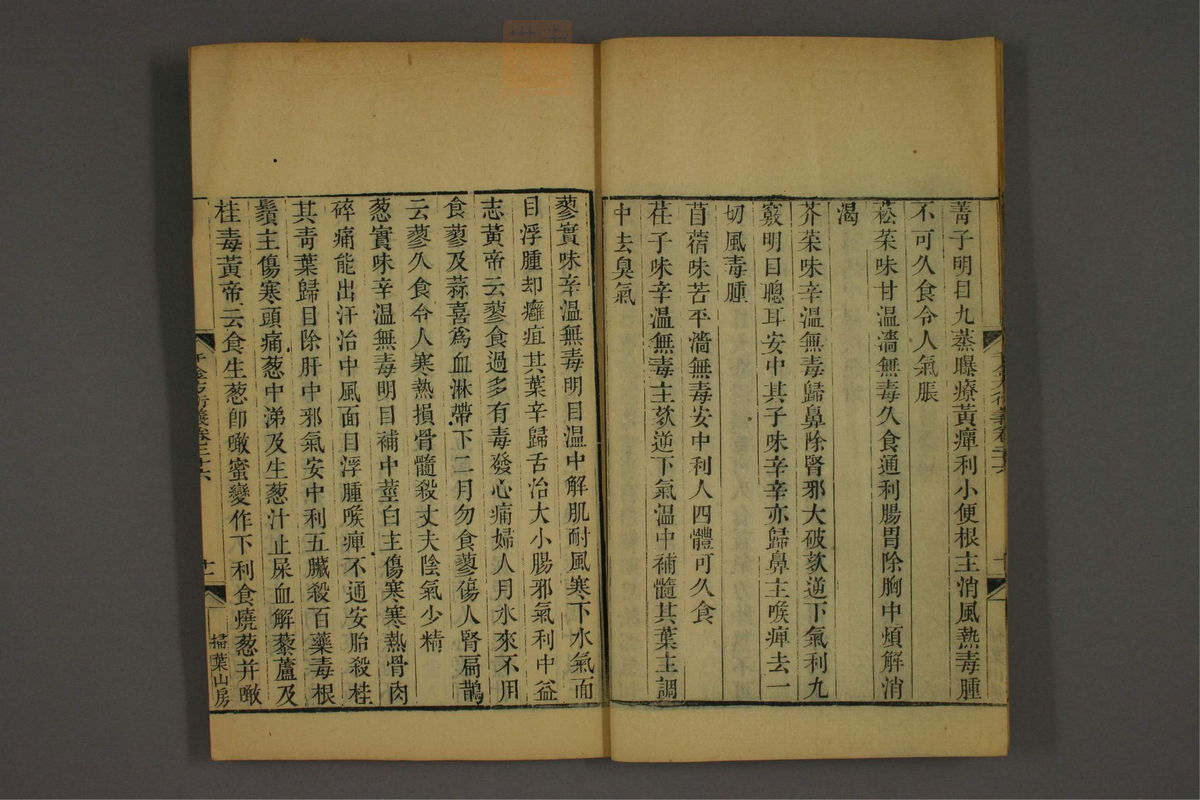 菁子明目九蒸曝療黃癉利小便根主消風熱毒腫
不可久食令人氣脹
菘菜味甘溫濇無毒久食通利腸胃除胸中煩解消
渴
芥菜味辛溫無毒歸鼻除腎邪大破欬逆下氣利九
竅明目聰耳安中其子味辛辛亦歸鼻主喉痺去一
切風毒腫
苜蓿味苦平濇無毒安中利人四體可久食
荏子味辛溫無毒主欬逆下氣溫中補髓其葉主調
中去臭氣
蓼實味辛溫無毒明目溫中解肌耐風寒下水氣面
目浮腫却癰疽其葉辛歸舌治大小腸邪氣利中益
志黃帝云蓼食過多有毒發心痛婦人月水來不用
食蓼及蒜喜為血淋帶下二月勿食蓼傷人腎扁鵲
云蓼久食令人寒熱損骨髓殺丈夫陰氣少精
葱實味辛溫無毒明目補中莖白主傷寒寒熱骨肉
碎痛能出汗治中風面目浮腫喉痺不通安胎殺桂
其青葉歸目除肝中邪氣安中利五臟殺百藥毒根
鬚主傷寒頭痛葱中涕及生葱汁止尿血解藜蘆及
桂毒黃帝云食生葱卽噉蜜變作下利食燒葱并噉
千金方衍義卷二十六
十一
掃葉山房